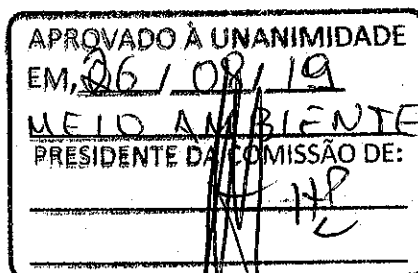 APROVADO À UNANIMIDADE
EM, 26 / 08 / 19
MEIO AMBIENTE
PRESIDENTE DA COMISSÃO DE: